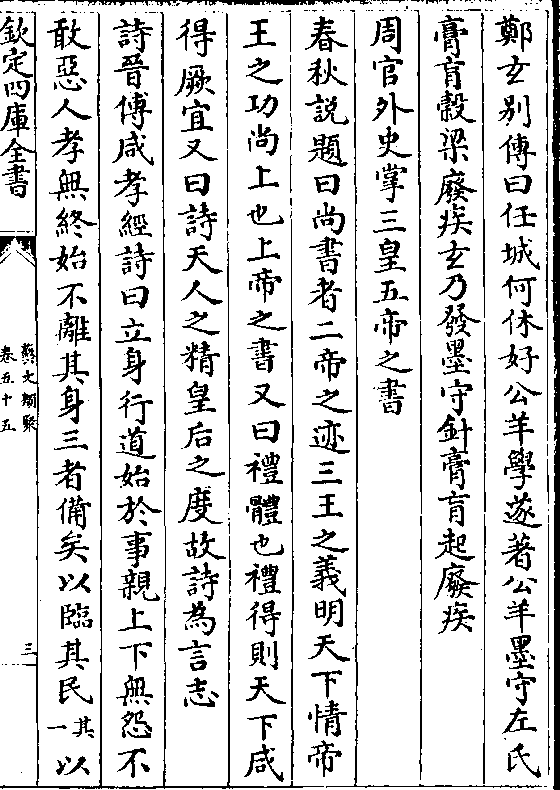 鄭玄别傳曰任城何休好公羊學遂著公羊墨守左氏
膏肓穀梁廢疾玄乃發墨守針膏肓起廢疾
周官外史掌三皇五帝之書
春秋説題曰尚書者二帝之迹三王之義明天下情帝
王之功尚上也上帝之書又曰禮體也禮得則天下咸
得厥宜又曰詩天人之精皇后之度故詩為言志
詩晉傅咸孝經詩曰立身行道始於事親上下無怨不
敢惡人孝無終始不離其身三者備矣以臨其民其一以
欽定四庫全書
藝文類聚
卷五十五
三